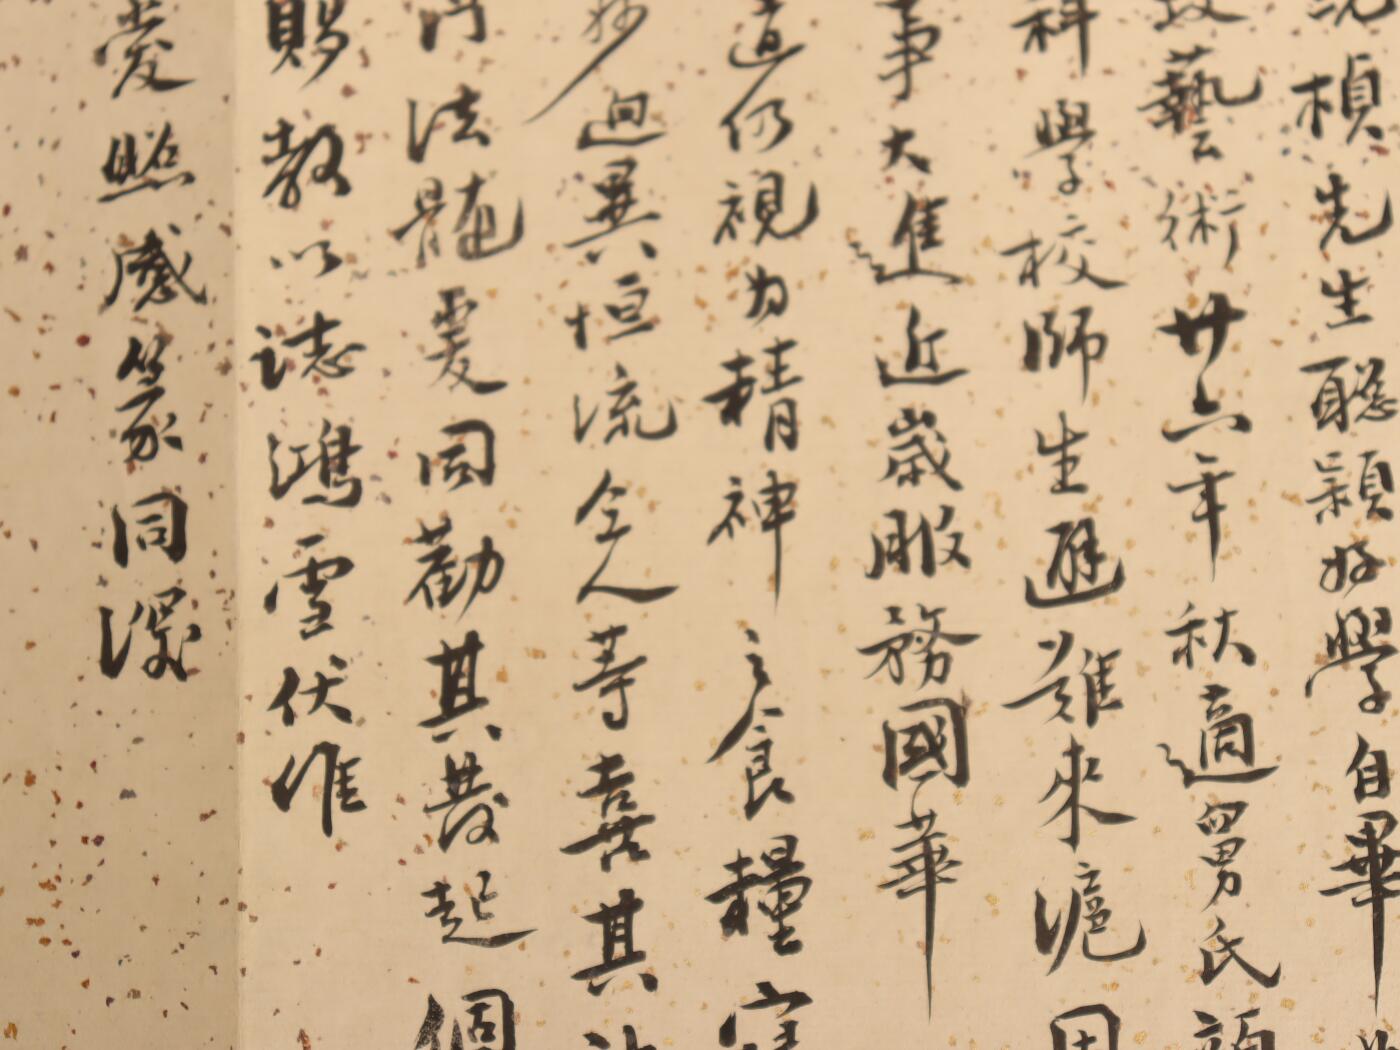 楨先生聰穎好學自畢
藝術廿六年秋適舅氏
科學校師生避難來滬因
事大進近歲服務國華
道仍視為精神之食糧
妙迥異恒流令人等喜其
門法髓爰同勸其發起個
賜教以誌鴻雪伏惟
愛照感篆同深